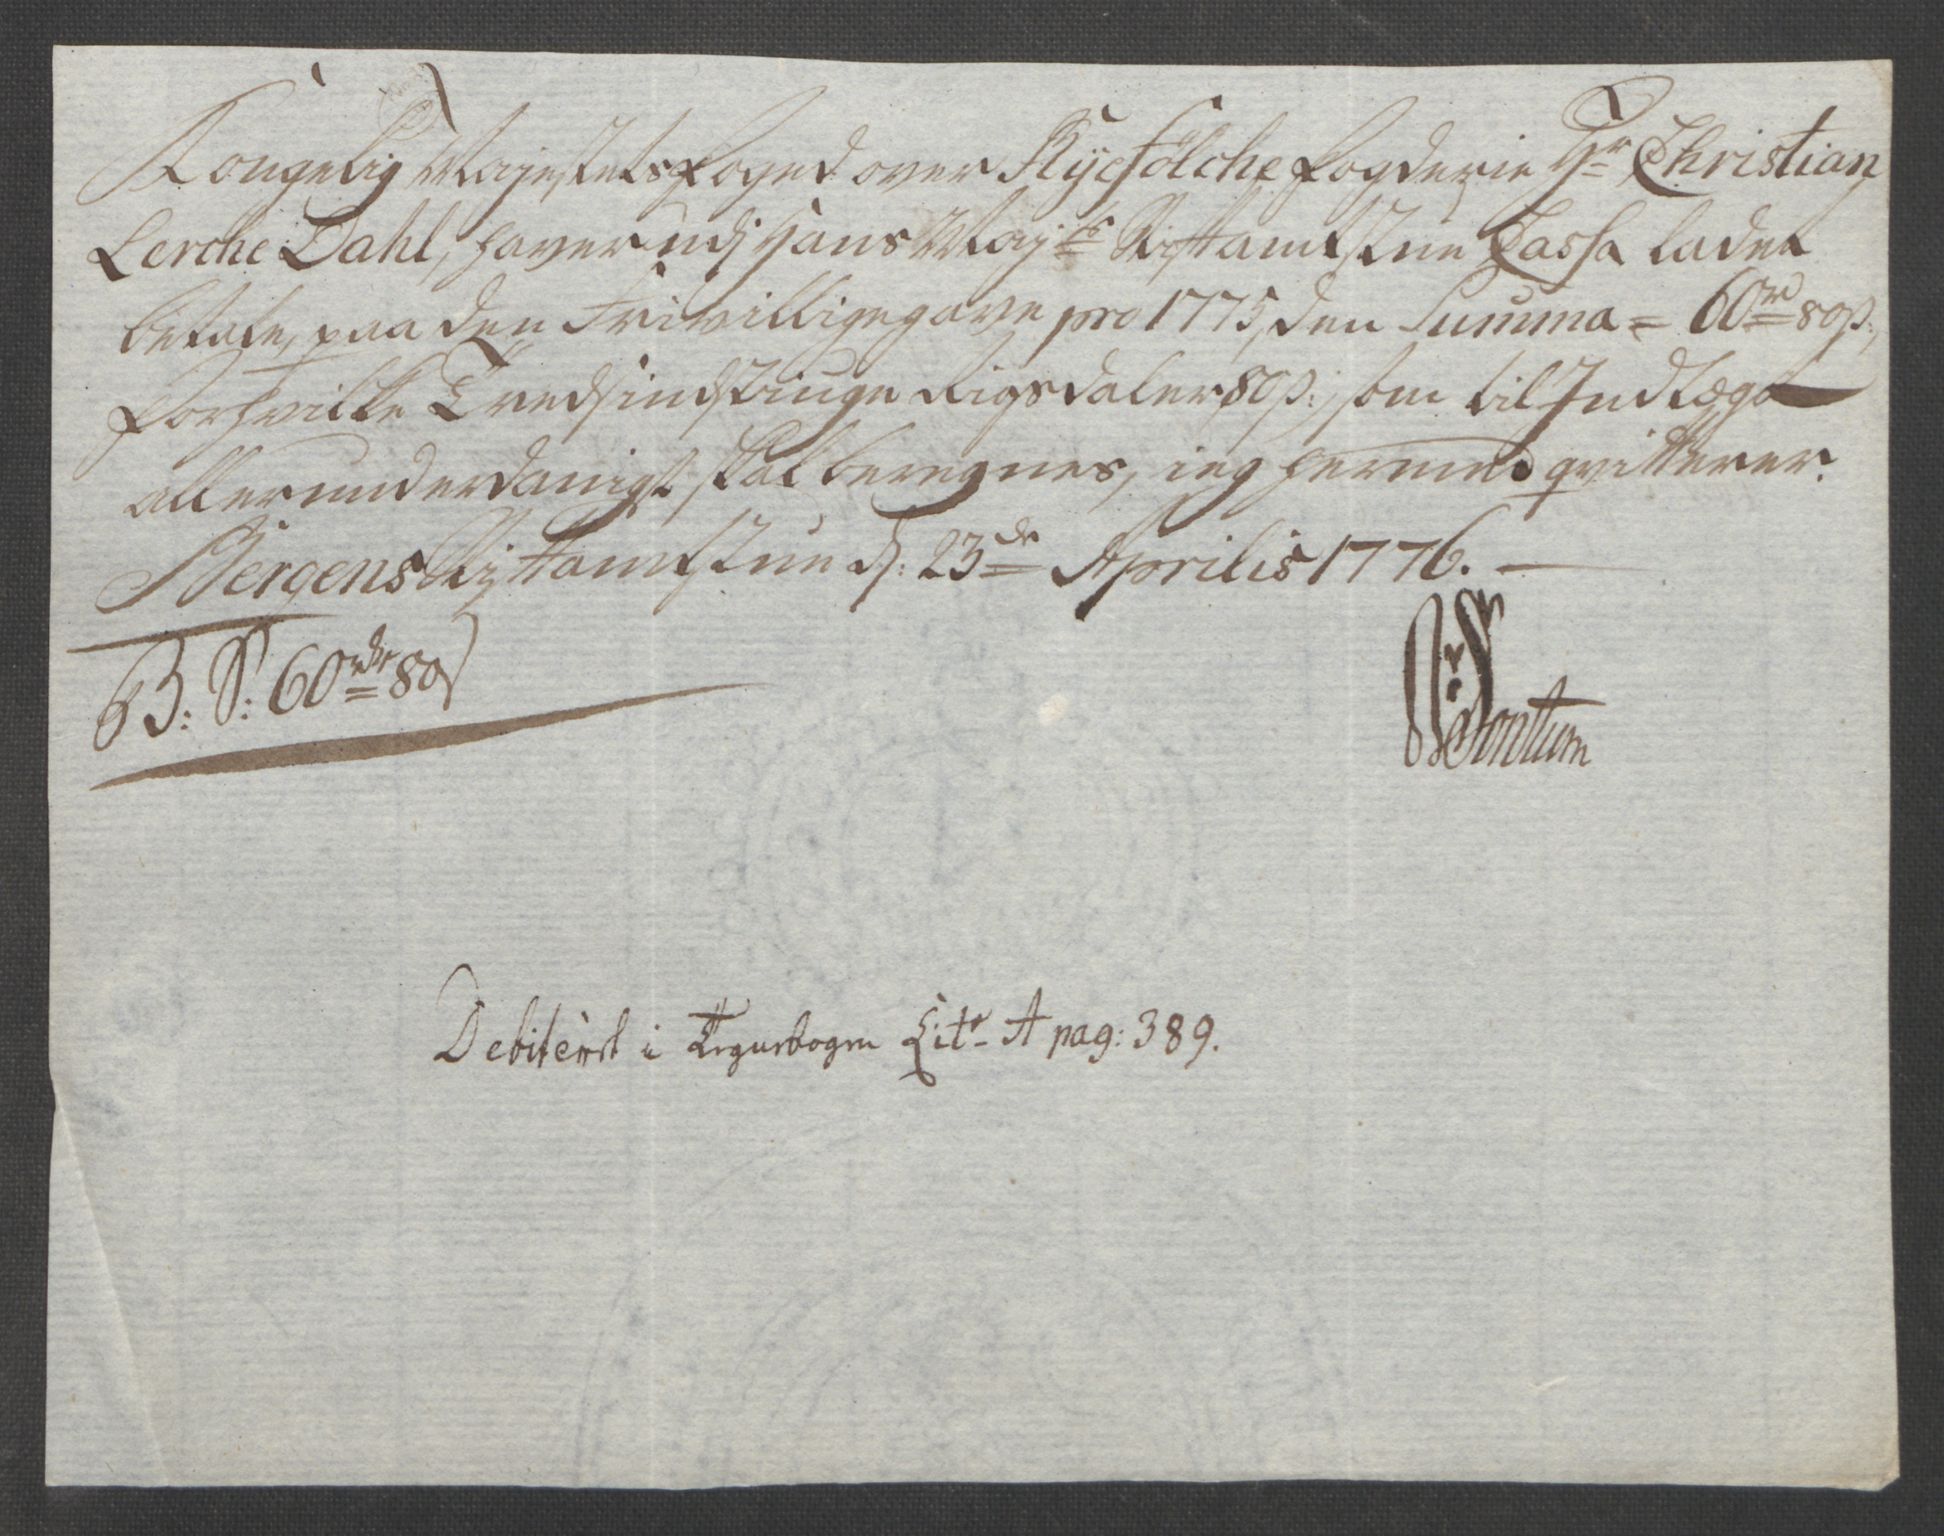 Kongelig Majestets foged over Ryefölche fogderie Hr Christian
Lerche Dahl, haver udj Hans Mayts Stiftamtstue Cassa ladet
betale, paa den frivillige gave pro 1775, den Summa = 60 rd 80 s:,
forschrifte Tredsindstiuge Rigsdaler 80 s:, som til Indtægt
allerunderdanigst skal beregnes, ieg hermed qvitterer.
Bergens Stiftamtstue d: 23de Aprilis 1776. —
B: S: 60 rdr 80 s
Debiteret i Regnsbogen Litr A pag: 389.